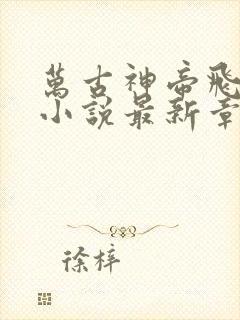 萬古神帝飛
小說最新章
徐梓